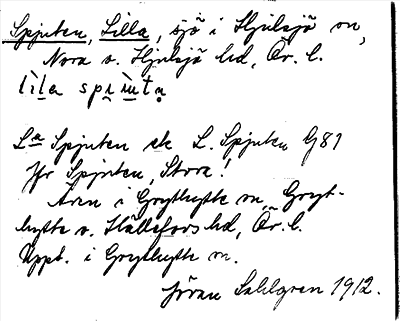 Spjuten, Lilla, sjö i Hjulsjö sn,
Nora o. Hjulsjö hd, Ör. l.
lìla spi̯ùta
La Spjuten ek L. Spjuten G81
Jfr Spjuten, Stora!
Även i Grythytte sn, Gryt-
hytte o. Hällefors hd, Ör. l.
Uppt. i Grythytte sn.
Jöran Sahlgren 1912.